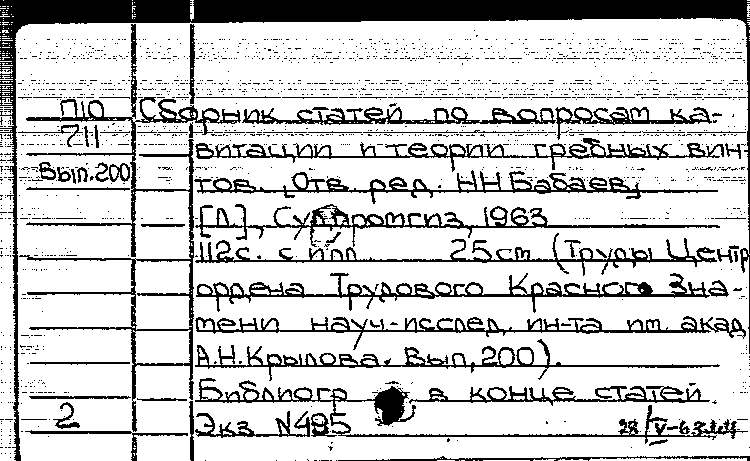 П10 Сборник статей по вопросам ка-
711
витации и теории гребных вин-
Вып.200
тов. [Отв. ред. Н Н Бабаев]
[Л.], Судпромгиз, 1963
112с. с илл 25см (Труды Центр
ордена Трудового Красного Зна-
мени науч.-исслед. ин-та им. акад
А.Н.Крылова. Вып, 200).
Библиогр в конце статей
2 Экз N495
28/V-63